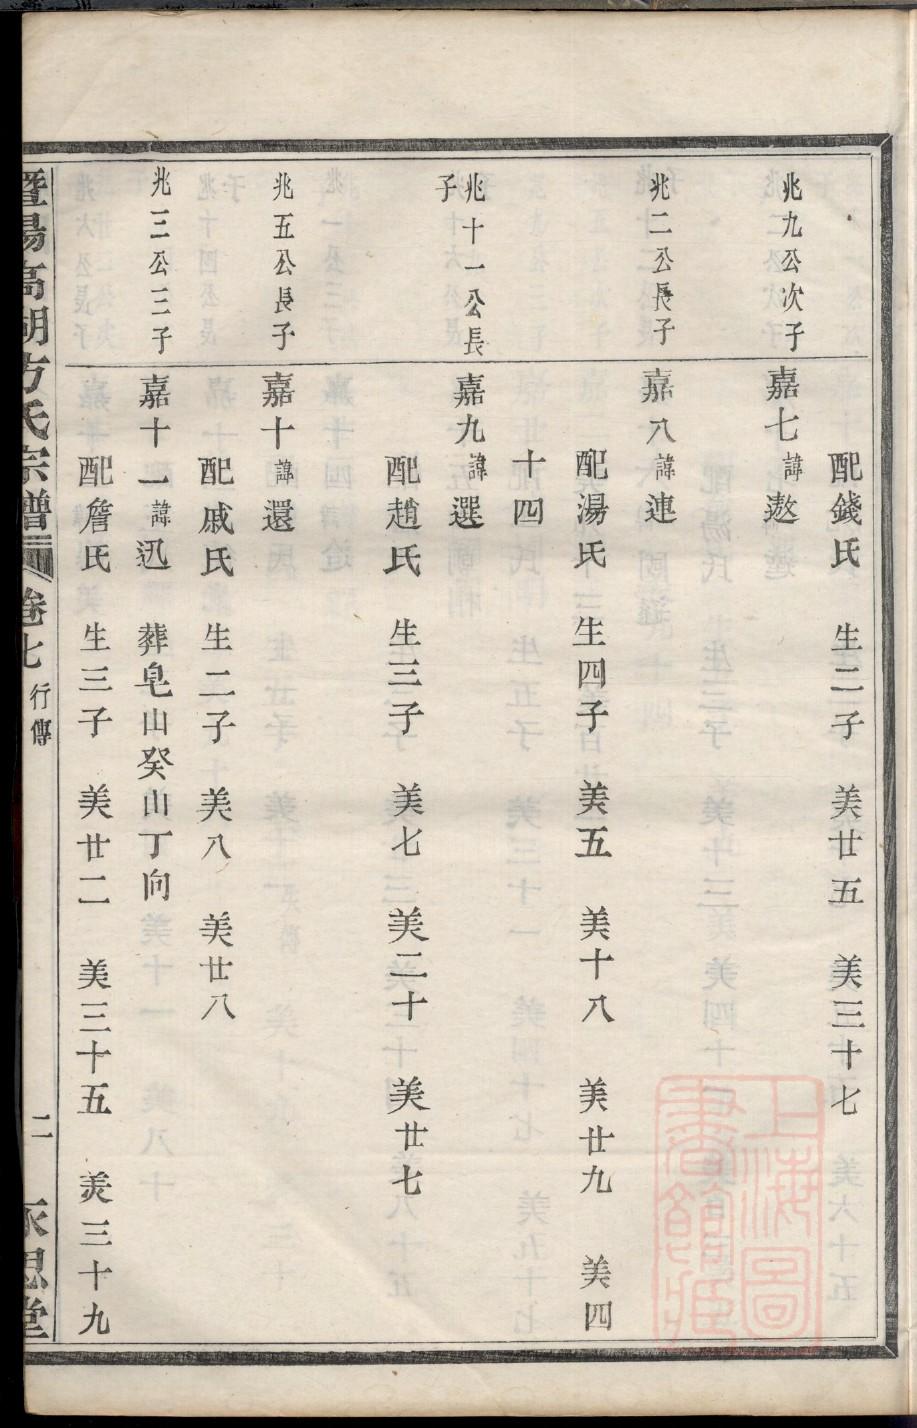 配錢氏 生二子 美廿五 美三十七
兆九公次子 嘉七諱遨
兆二公長子 嘉八諱連
配湯氏 生四子 美五 美十八 美廿九 美四
十四
兆十一公長子 嘉九諱選
配趙氏 生三子 美七 美二十 美廿七
兆五公長子 嘉十諱還
配戚氏 生二子 美八 美廿八
兆三公三子 嘉十一諱迅 葬皂山癸山丁向
配詹氏 生三子 美廿二 美三十五 美三十九
暨陽高湖方氏宗譜 卷七 行傳 二 永思堂
上海圖書館藏